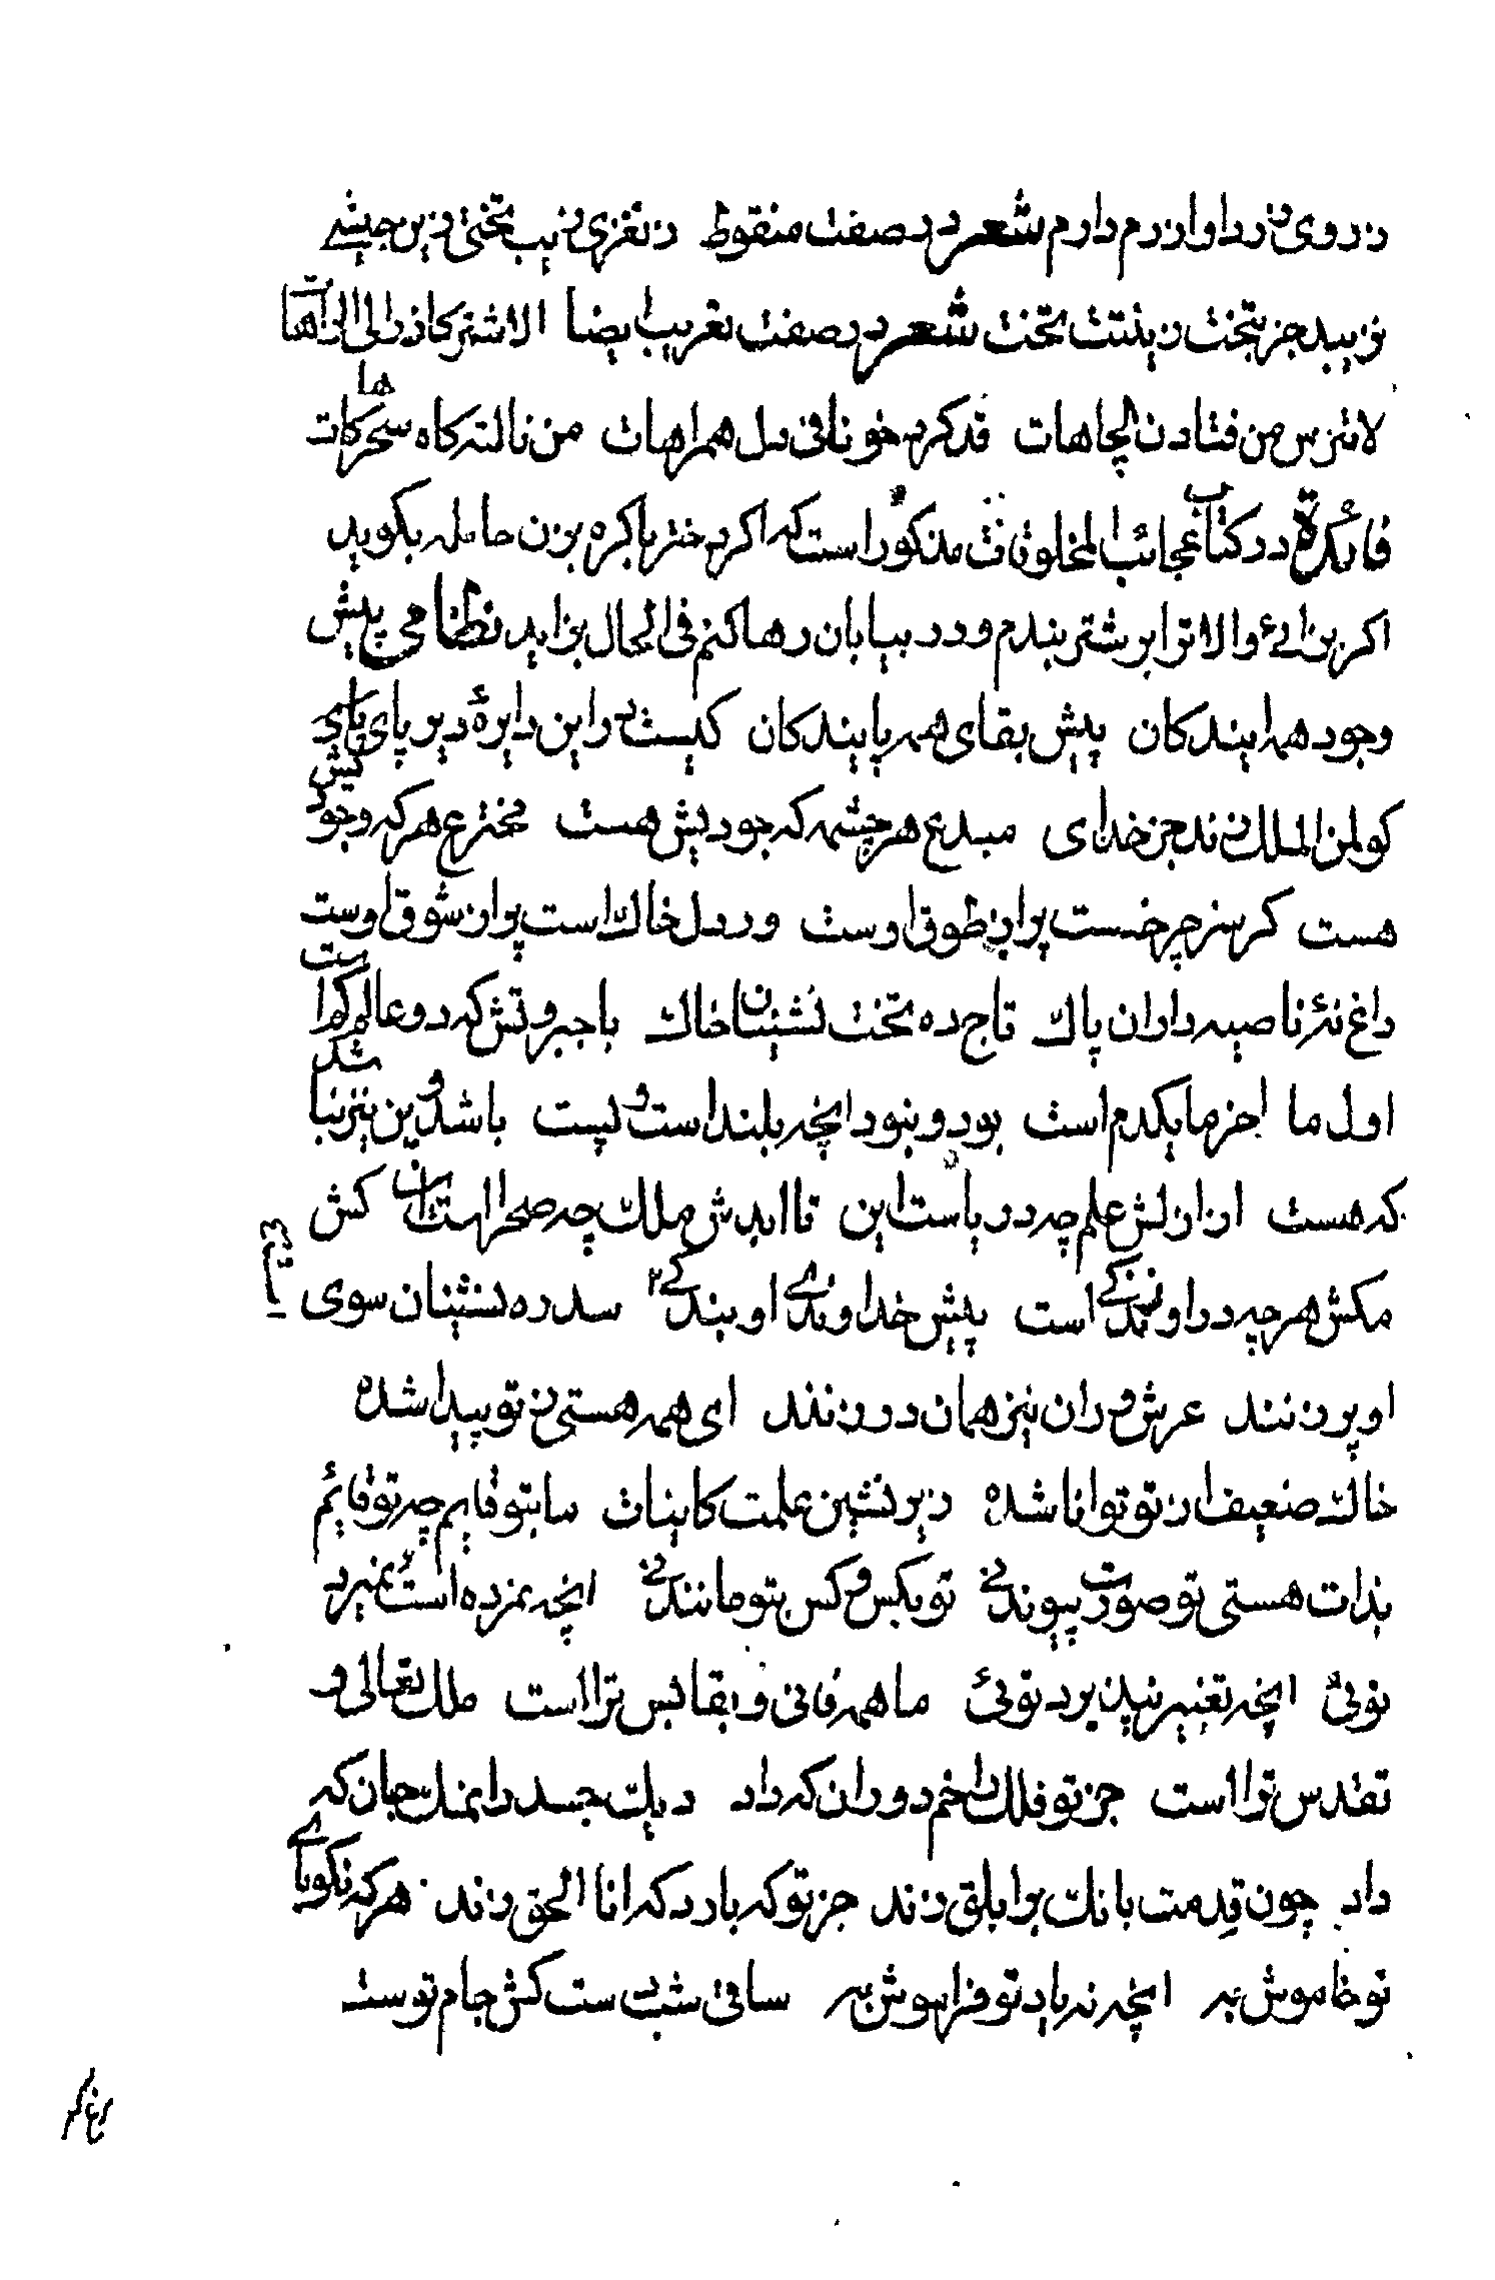 زروی زرد اوازرم دارم شعر در صفت منقوط زنغزی زیب تختی زین جیشے
نزیبد جز بتخت زینتت تخت شعر در صفت تعریب ایضا الاشتر کاذر الی الراهها
لاتترس من فتادن الچاهات قد کرد خونا فی دل همراهات من نالته کاه سحر کات
فائدة در کتاب عجائب المخلوقات مذکور است که اکر دختر باکره بزن حامله بکوید
اکر بزائے والا ترا بر شتر بندم و در بیابان رها کنم فی الحال بزاید نظامی پیش
وجود همه ایندکان پیش بقای همه پایندکان کیست درین دایرهٔ دیر پای پای
کو لمن الملک زند جز خدای مبدع هر چشمه که جودیش هست مخترع هر که وجودیش
هست کر سر چرخست پر از طوق اوست ور دل خاک است پر از شوق اوست
داغ نه ناصیه داران پاک تاج ده تخت نشینان خاک با جبروتش که دو عالم کم است
اول ما اخر ما یکدم است بود و نبود انچه بلند است و پست باشد و این نیز نباشد
که هست از ازلش علم چه دریاست این تا ابدش ملک چه صحراست این کش
مکش هر چه در او زندکے است پیش خداوندے او بندکے سدره نشینان سوی
او پر زنند عرش روان نیز همان در زنند ای همه هستی ز تو پیدا شده
خاک ضعیف از تو توانا شده زیر نشین علمت کاینات ما بتو قایم چه تو قائم
بذات هستی تو صورت پیوند نے تو بکس و کس بتو مانند نے انچه نمرده است نمیرد
توئی انچه تغییر نپذیرد توئی ما همه فانی و بقا بس ترا است ملک تعالی و
تقدس ترا است جز تو فلک را خم دوران که داد دیک جسد را نمک جان که
داد چون قدمت بانک بر ابلق زند جز تو که یارد که انا الحق زند هر که نه کویای
تو خاموش به انچه نه یاد تو فراموش به ساقی شب دست کش جام توست